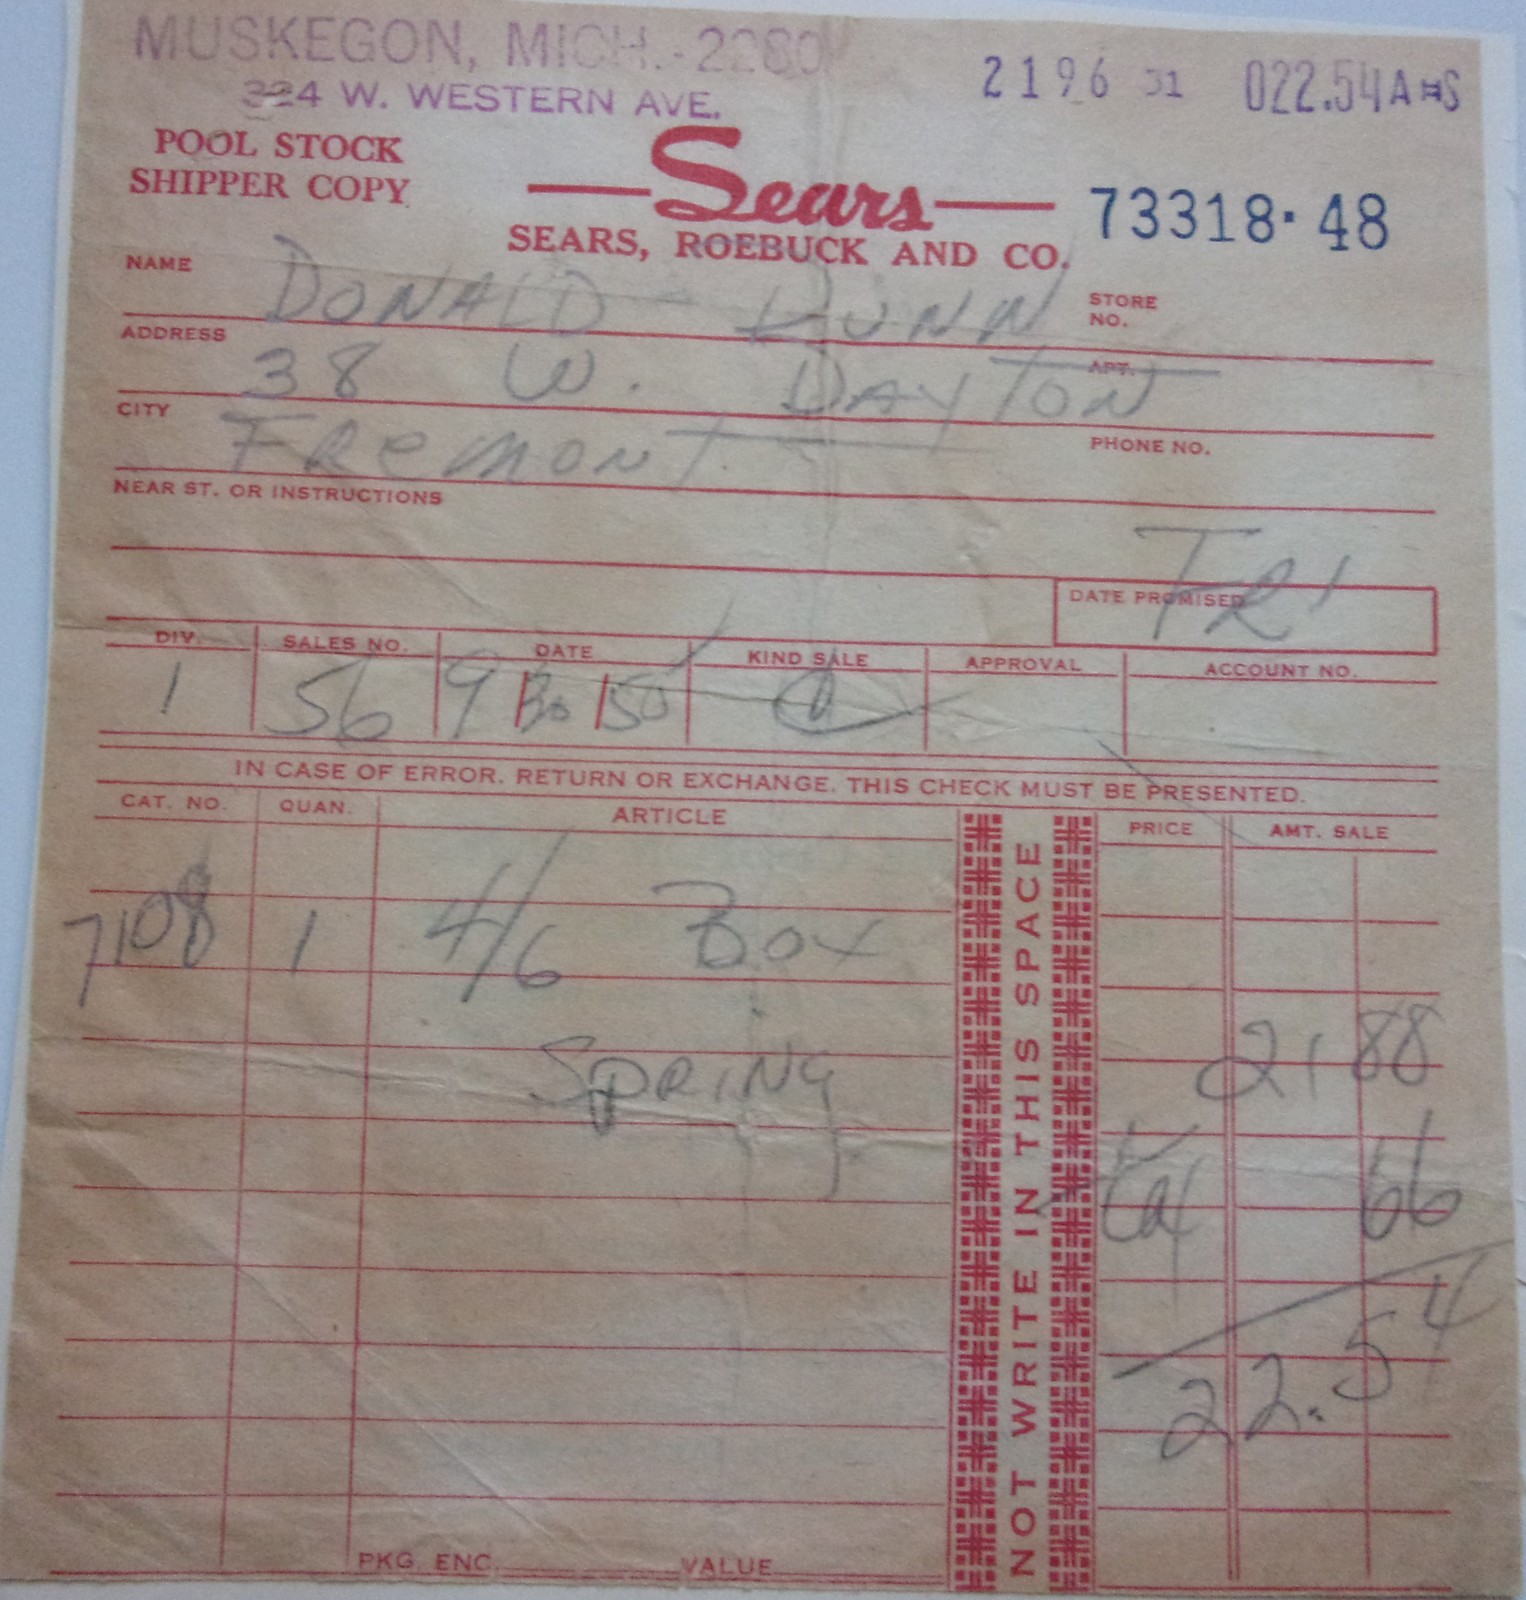 MUSKEGON, MICH.-2280
324 W. WESTERN AVE.
2196 31 022.54A
POOL STOCK
SHIPPER COPY
Sears
SEARS, ROEBUCK AND CO.
73318·48
NAME DONALD DUNN
STORE NO.
ADDRESS 38 W. DAYTON
APT.
CITY FREMONT
PHONE NO.
NEAR ST. OR INSTRUCTIONS
DATE PROMISED FRI
DIV. SALES NO. DATE KIND SALE APPROVAL ACCOUNT NO.
1 56 9 30 50
IN CASE OF ERROR. RETURN OR EXCHANGE. THIS CHECK MUST BE PRESENTED.
CAT. NO. QUAN. ARTICLE PRICE AMT. SALE
7108 1 4/6 BOX
SPRING 21 88
tax 66
22.54
NOT WRITE IN THIS SPACE
PKG. ENC. VALUE